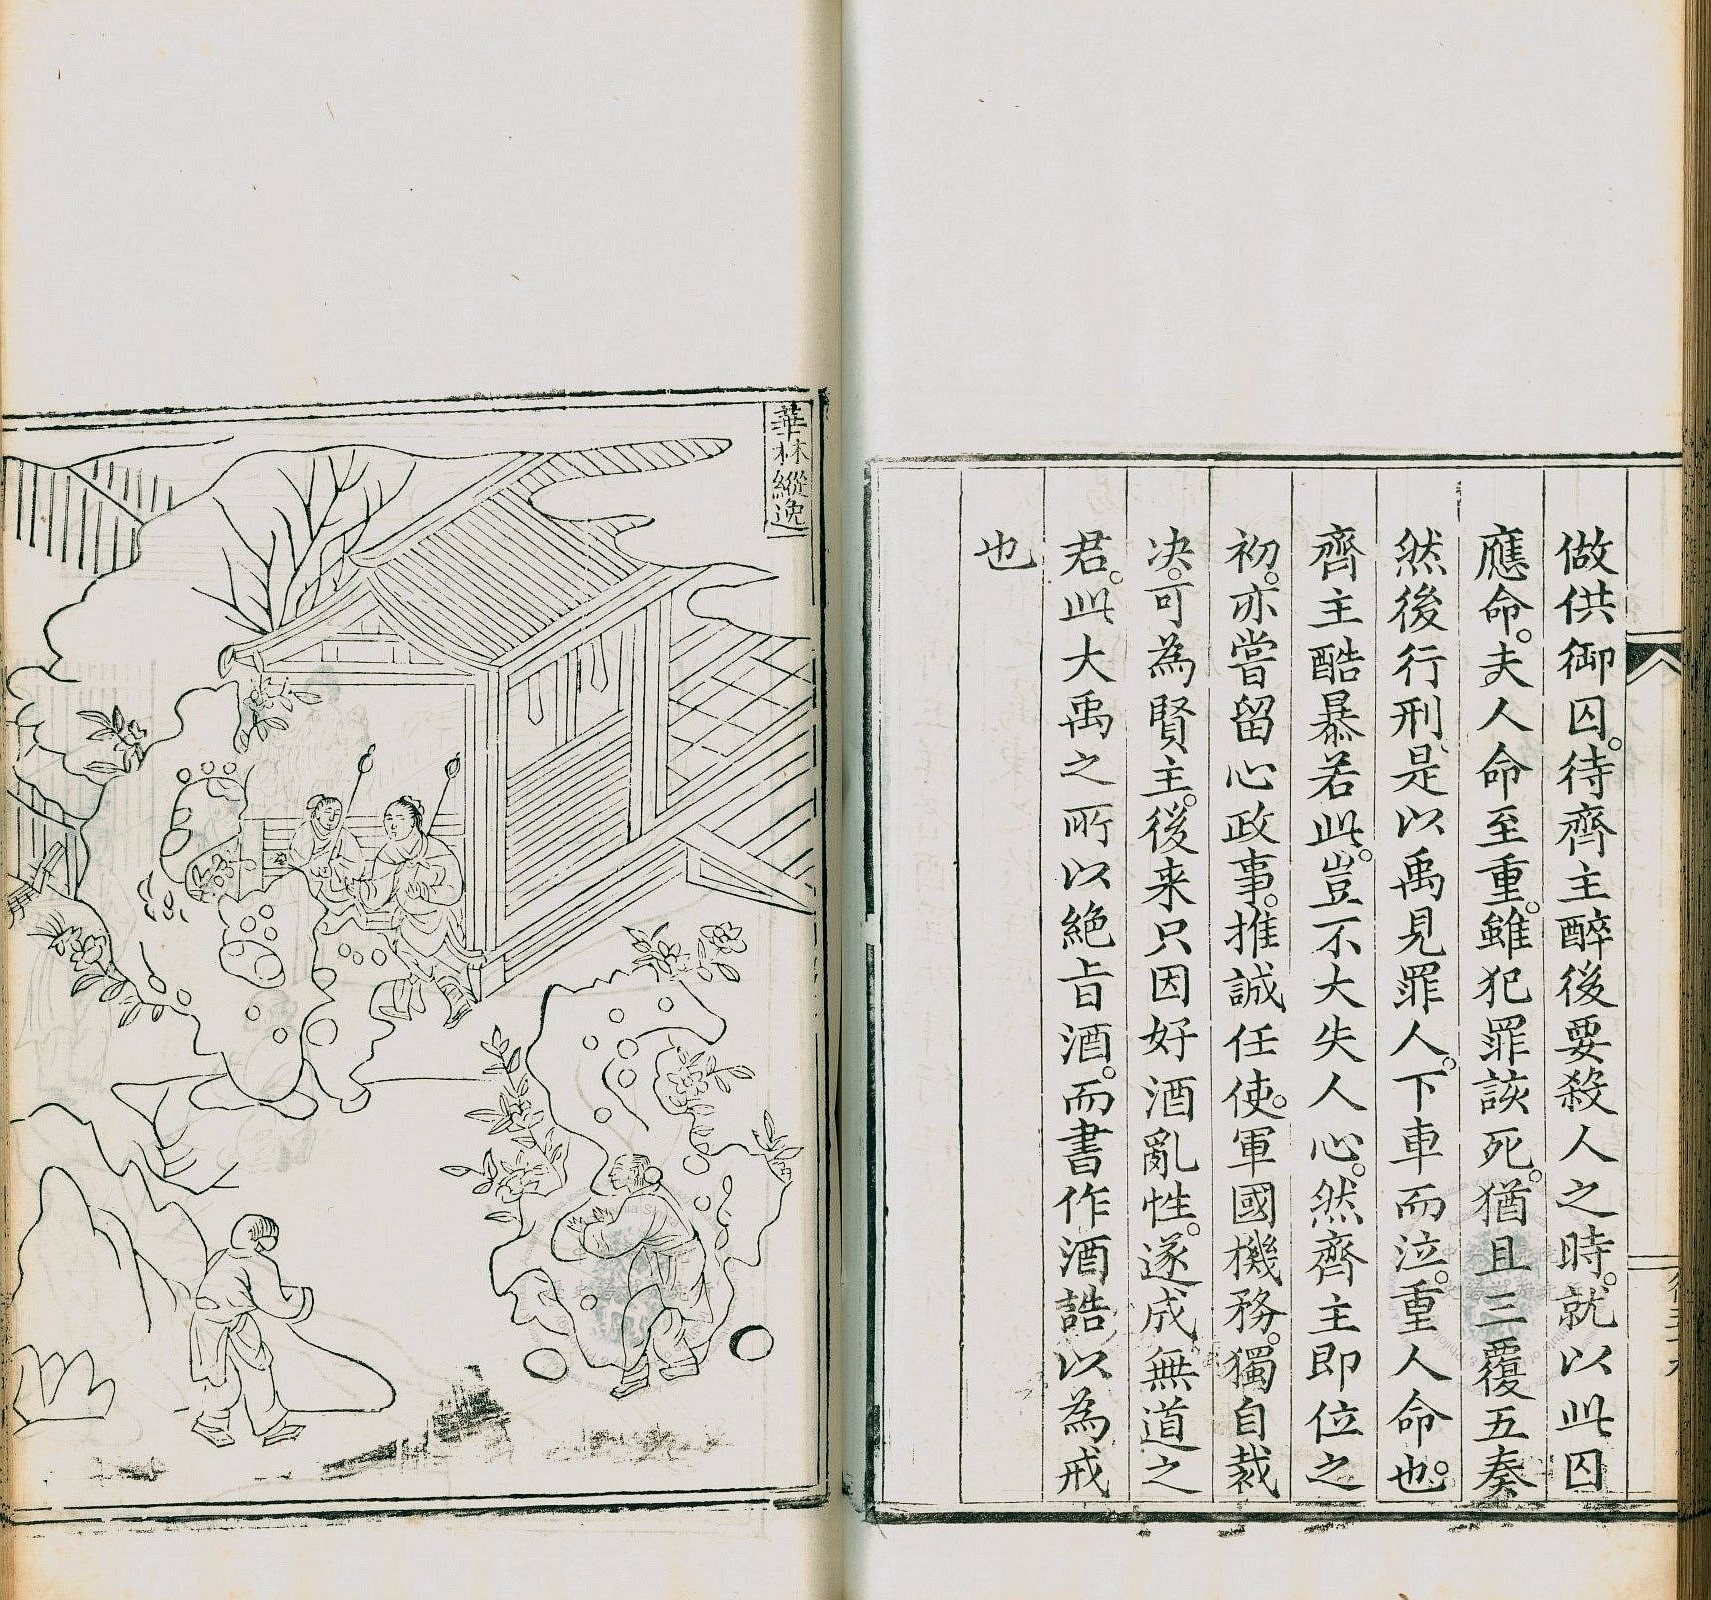 做供御囚。待齊主醉後要殺人之時。就以此囚
應命。夫人命至重。雖犯罪該死。猶且三覆五奏
然後行刑。是以禹見罪人。下車而泣。重人命也。
齊主酷暴若此。豈不大失人心。然齊主即位之
初。亦嘗留心政事。推誠任使。軍國機務。獨自裁
决。可為賢主。後来只因好酒亂性。遂成無道之
君。此大禹之所以絶㫖酒。而書作酒誥以為戒
也
華林縱逸